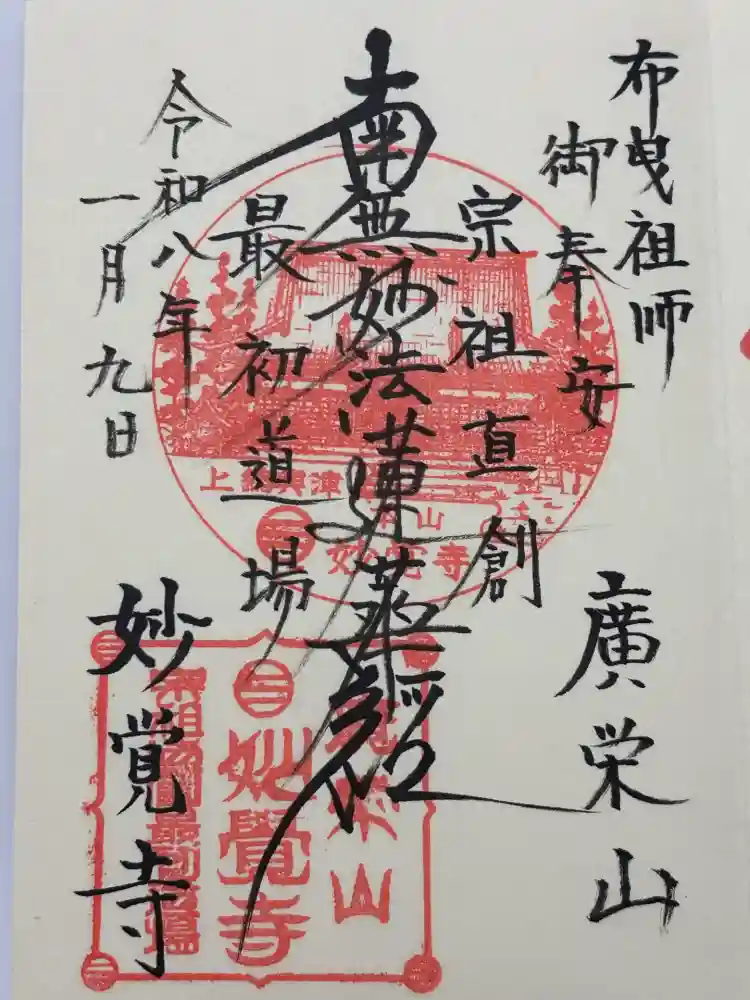 布曳祖師
御奉安
廣栄山
宗祖直創
南無妙法蓮華経
最初道場
令和八年
一月九日
妙覚寺
上総興津
本山
妙覚寺
山
妙覺寺